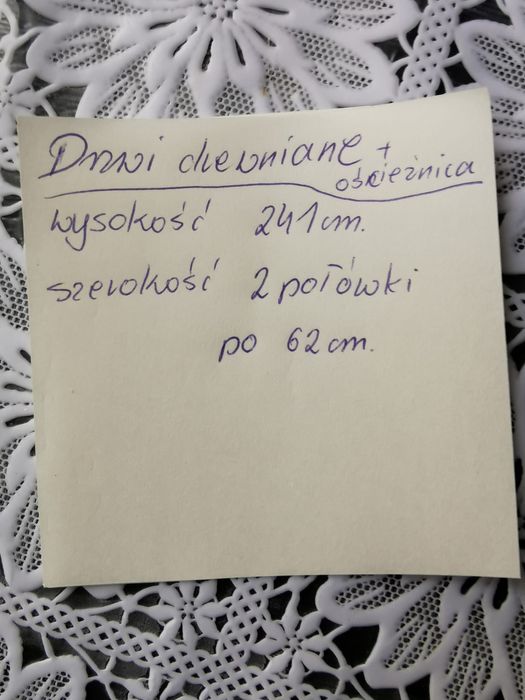 Drzwi drewniane +
ościeżnica
wysokość 241cm.
szerokość 2 połówki
po 62cm.